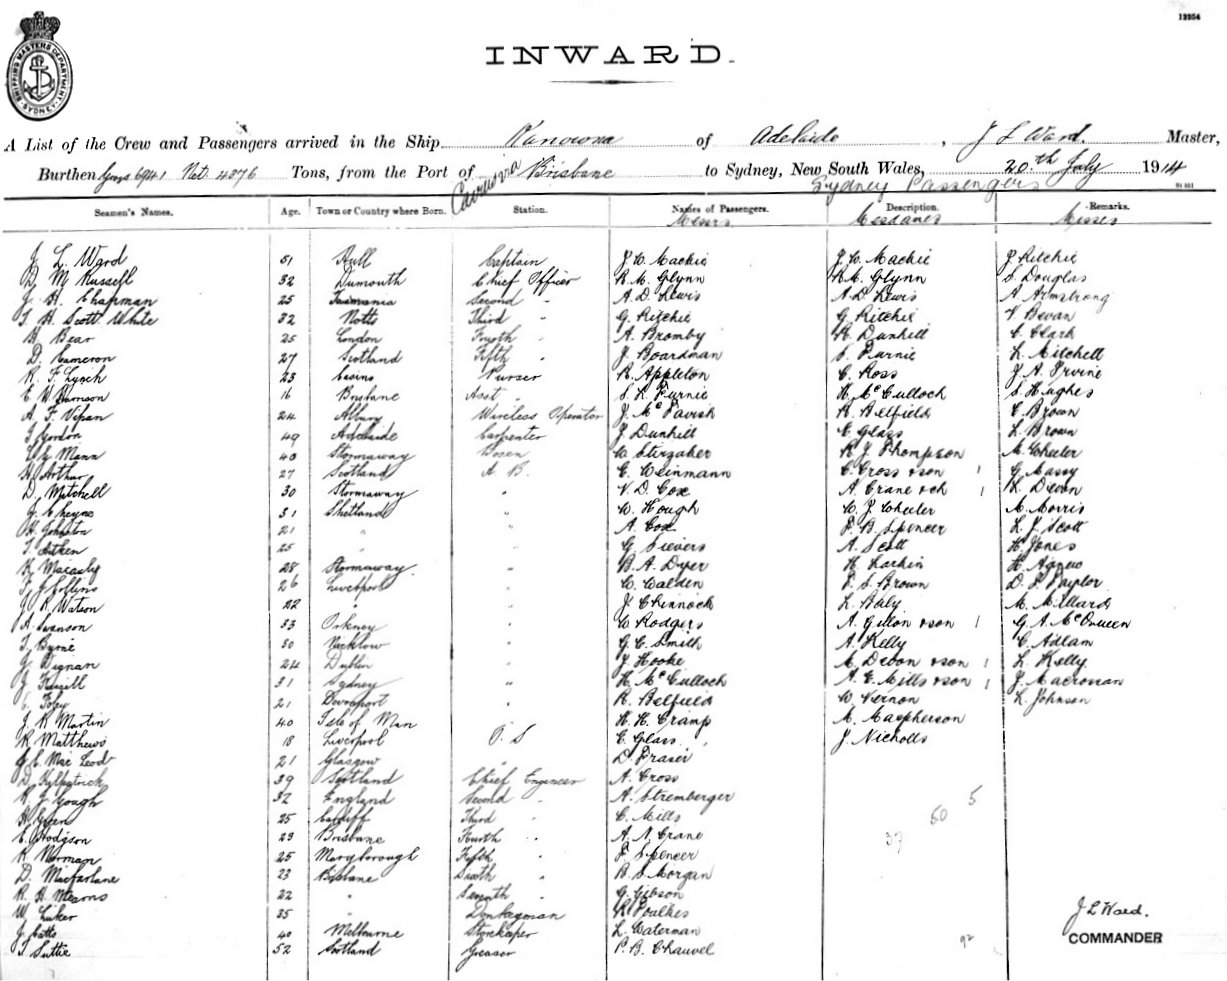 12254
SHIPPING MASTERS DEPARTMENT SYDNEY
INWARD.
A List of the Crew and Passengers arrived in the Ship Kanowna of Adelaide, J L Ward. Master,
Burthen Gross 6941 Net. 4876 Tons, from the Port of Brisbane to Sydney, New South Wales, 20th July 1914
Sydney Passengers
Seamen's Names. Age. Town or Country where Born. Station. Names of Passengers. Description. Remarks.
Messrs Mesdames Misses
J. L. Ward 51 Hull Captain J. W. Mackie J. W. Mackie J Ritchie
D. M Russell 32 Chief Officer R. M. Glynn R. M. Glynn S. Douglas
J. H. Chapman 25 Tasmania Second " A. D. Lewis A. D. Lewis A Armstrong
T. H. Scott White 32 Notts Third " G. Ritchie G. Ritchie V Bevan
H. Bear 25 London Fourth " A. Bromby R. Dunhill C. Clark
D. Cameron 27 Scotland Fifth " J. Boardman S. Furnie L. Mitchell
R. F. Lynch 23 Casino Purser R. Appleton C. Ross J A. Irvine
E. W. Harrison 16 Brisbane Asst " S. L. Furnie H. McCulloch S. Hughes
A. F. Vipan 24 Albury Wireless Operator J. McTavish R. Belfield C. Brown
J. Gordon 49 Adelaide Carpenter J. Dunhill C. Glass L. Brown
Mann 40 Stornaway Bosen W. Stirzaker R. J. Thompson M. Wheeler
H. Arthur 27 Scotland A. B. C. Weinmann C. Cross & son 1 G. Massy
D. Mitchell 30 Stornaway " V. D. Cox A. Crane & ch 1 H. Devon
J. Cheyne 31 Shetland " W. Hough W. J. Wheeler M. Morris
H. Johnston 21 " " A. Cox F. B. Spencer L. J. Scott
T. Aitken 25 " " G. Sievers A. Scott H. Jones
K. Macauly 28 Stornaway. " B. A. Dyer H. Larkin H. Agnew
T. J. Collins 26 Liverpool " W. Walden F. S. Brown D. F. Taylor
J. R. Watson 22 " " J. Chinnock L. Baly M. Millard
A. Swanson 33 Orkney " W. Rodgers A. Gillon & son 1 G. A. McQueen
T. Byrne 30 Wicklow " G. C. Smith A. Kelly C. Adlam
J. Dignan 24 Dublin " J. Hooke M. Devon & son 1 L. Kelly
J. 31 Sydney " H. McCulloch A. E. Mills & son 1 J. Macrossan
C. Foley 21 Devonport " R. Belfield W. Vernon K. Johnson
J. R. Martin 40 Isle of Man H. H. Cramp M. Macpherson
R. Matthews 18 Liverpool O. S C. Glass J. Nicholls
J. C. Mac Leod 21 Glasgow " D. Fraser
D. Kilpatrick 39 Scotland Chief Engineer A. Cross
R. J. Gough 32 England Second " A. Stremberger
H. Green 25 Cardiff Third " C. Mills
E. Hodgson 29 Brisbane Fourth " A. N. Crane
K. Norman 25 Maryborough Fifth " F. Spencer
D. Macfarlane 23 Brisbane Sixth " B. S. Morgan
R. H. Mearns 22 " Seventh " G. Gibson
W. Luker 35 " Donkeyman R. Foulkes
J. Catts 40 Melbourne Storekeeper L. Waterman
T. Suttie 52 Scotland Greaser P. B. Chauvel
5
50
37
92
J L Ward.
COMMANDER